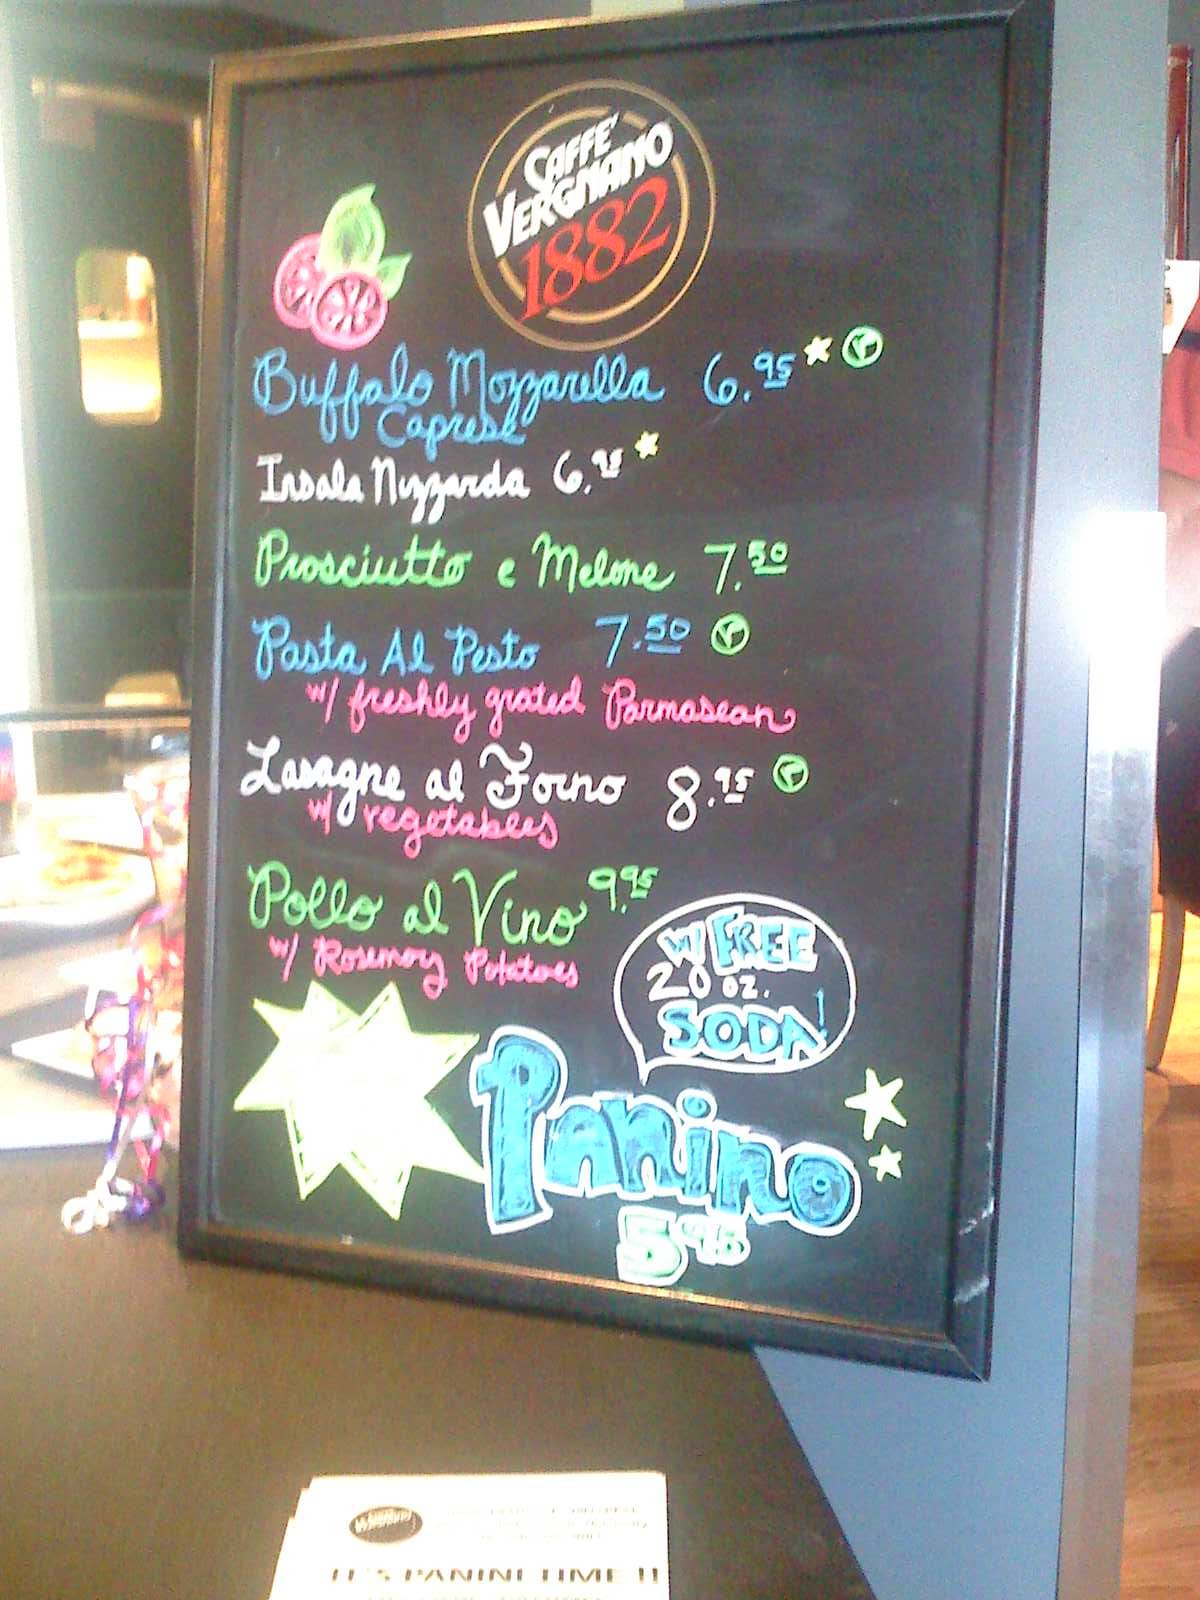 CAFFE'
VERGNANO
1882
Buffalo Mozzarella 6.95 V
Caprese
Insala Nizzarda 6.95
Prosciutto e Melone 7.50
Pasta Al Pesto 7.50 V
w/ freshly grated Parmasean
Lasagne al Forno 8.95 V
w/ vegetables
Pollo al Vino 9.95
w/ Rosemary Potatoes
w/ FREE
20 oz.
SODA!
Panino
5.95
IT'S PANINI TIME !!